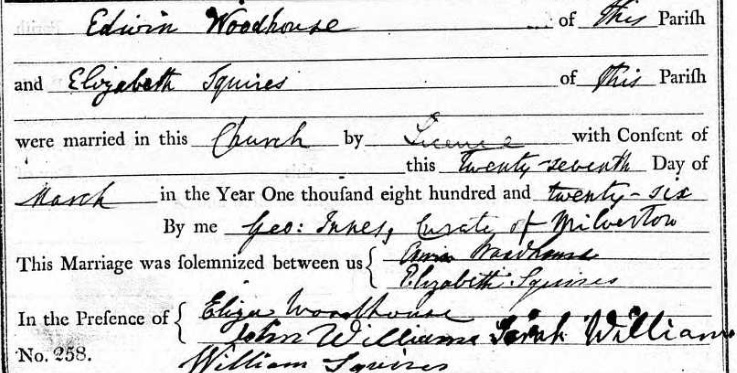 Edwin Woodhouse of this Pariſh
and Elizabeth Squires of this Pariſh
were married in this Church by Licence with Conſent of
this twenty-seventh Day of
March in the Year One thouſand eight hundred and twenty-six
By me Geo: Innes, Curate of Milverton
This Marriage was ſolemnized between us { Edwin Woodhouse
Elizabeth Squires
In the Preſence of { Eliza Woodhouse
John Williams Sarah Williams
No. 258. William Squires